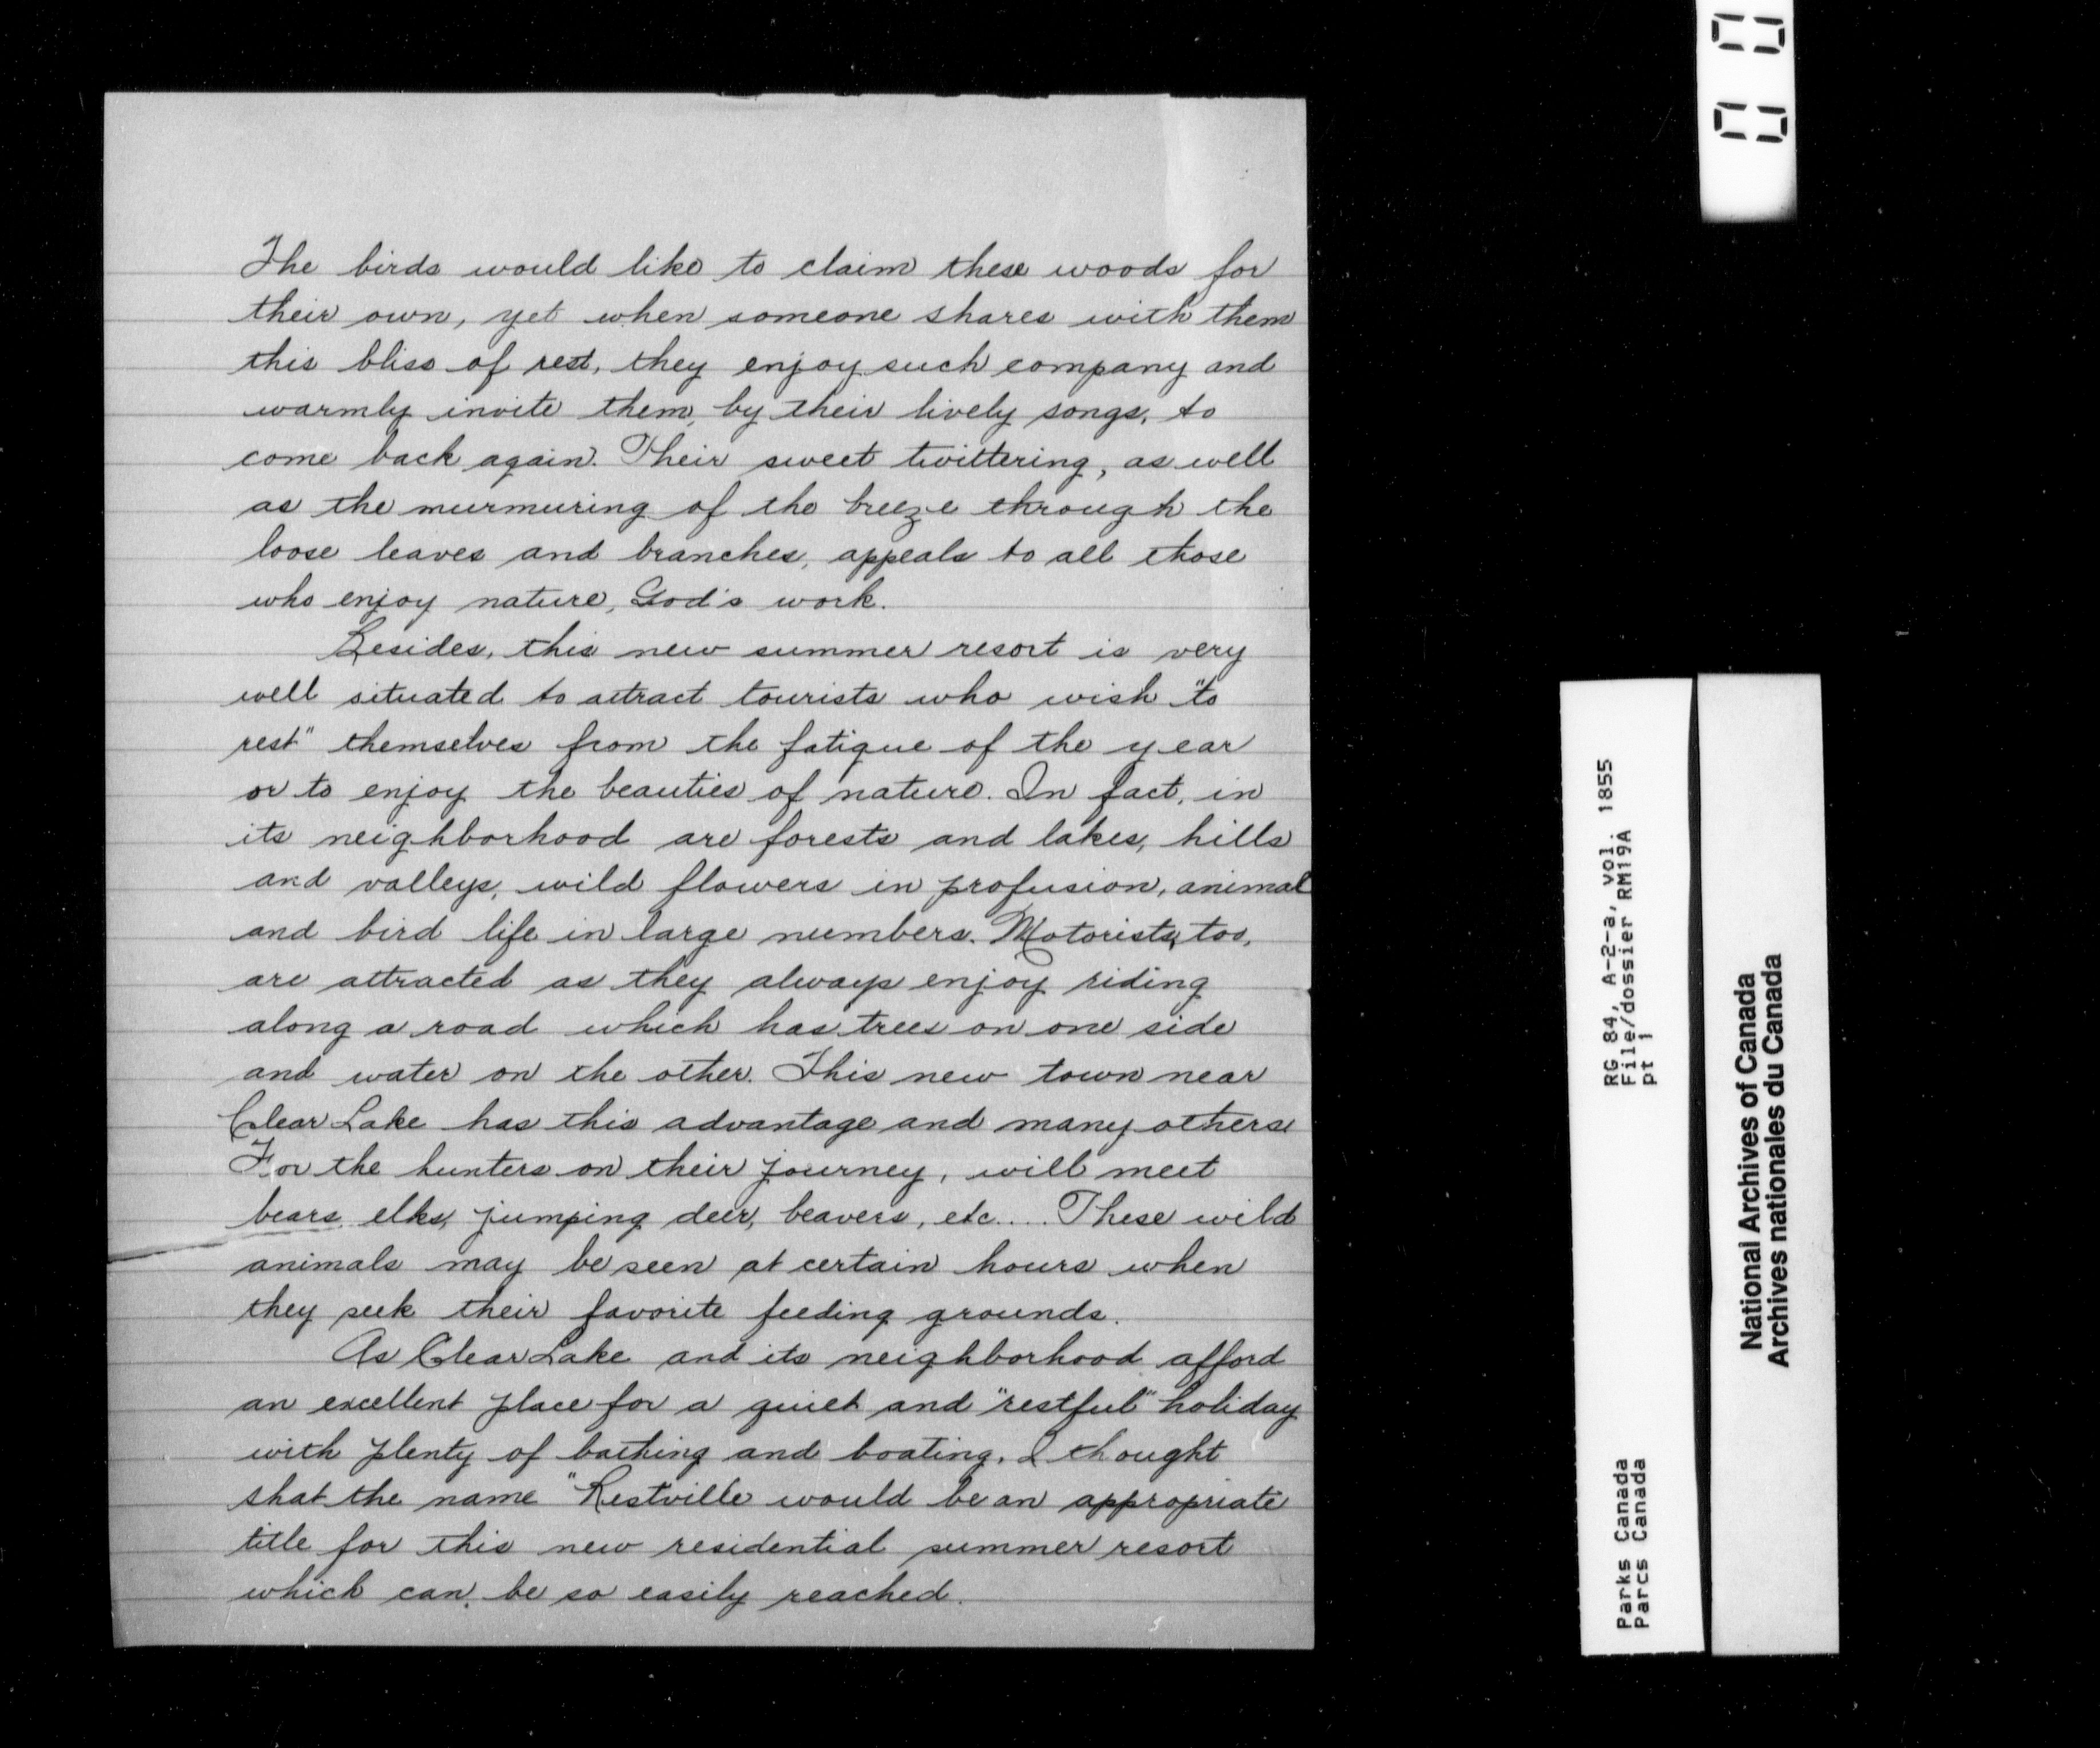 The birds would like to claim these woods for
their own, yet when someone shares with them
this bliss of rest, they enjoy such company and
warmly invite them, by their lively songs, to
come back again. Their sweet twittering, as well
as the murmuring of the breeze through the
loose leaves and branches, appeals to all those
who enjoy nature, God's work.
Besides, this new summer resort is very
well situated to attract tourists who wish "to
rest" themselves from the fatigue of the year
or to enjoy the beauties of nature. In fact, in
its neighborhood are forests and lakes, hills
and valleys, wild flowers in profusion, animal
and bird life in large numbers. Motorists, too,
are attracted as they always enjoy riding
along a road which has trees on one side
and water on the other. This new town near
Clear Lake has this advantage and many others.
For the hunters on their journey, will meet
bears, elks, jumping deer, beavers, etc.... These wild
animals may be seen at certain hours when
they seek their favorite feeding grounds.
As Clear Lake and its neighborhood afford
an excellent place for a quiet and "restful" holiday
with plenty of bathing and boating, I thought
that the name "Restville would be an appropriate
title for this new residential summer resort
which can be so easily reached.
RG 84, A-2-a, vol. 1855
File/dossier RM19A
pt 1
Parks Canada
Parcs Canada
National Archives of Canada
Archives nationales du Canada
00